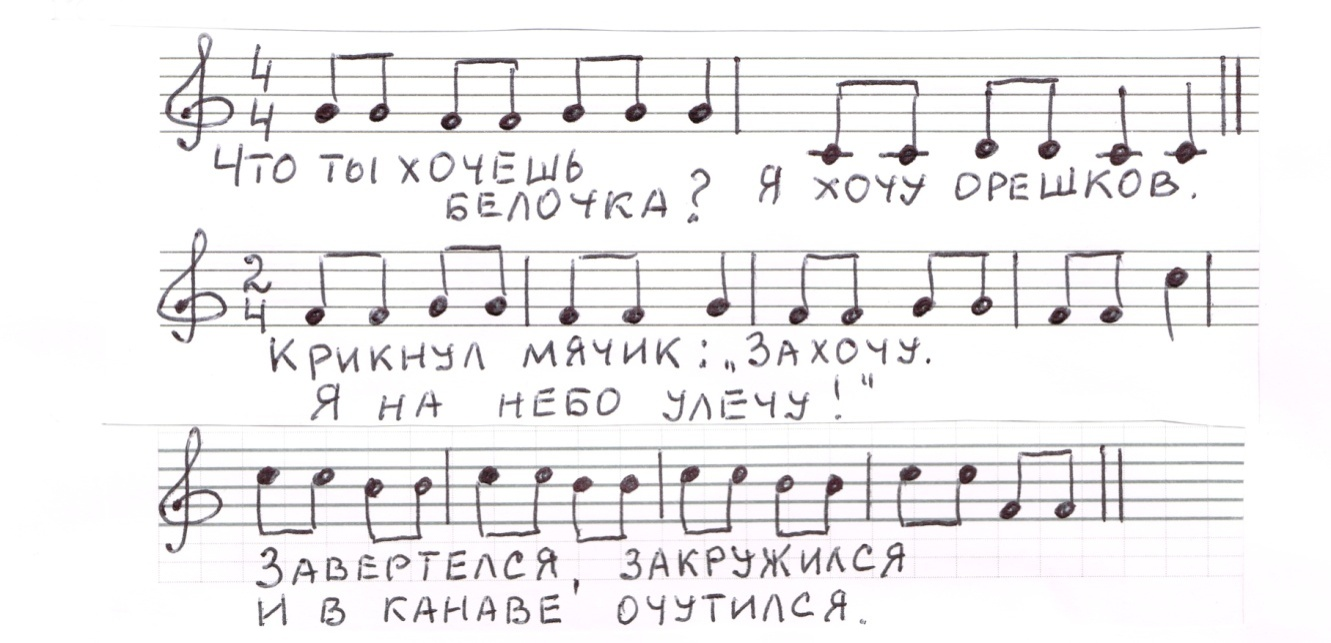 4
4
ЧТО ТЫ ХОЧЕШЬ
БЕЛОЧКА? Я ХОЧУ ОРЕШКОВ.
2
4
КРИКНУЛ МЯЧИК: „ЗАХОЧУ.
Я НА НЕБО УЛЕЧУ!"
ЗАВЕРТЕЛСЯ, ЗАКРУЖИЛСЯ
И В КАНАВЕ ОЧУТИЛСЯ.